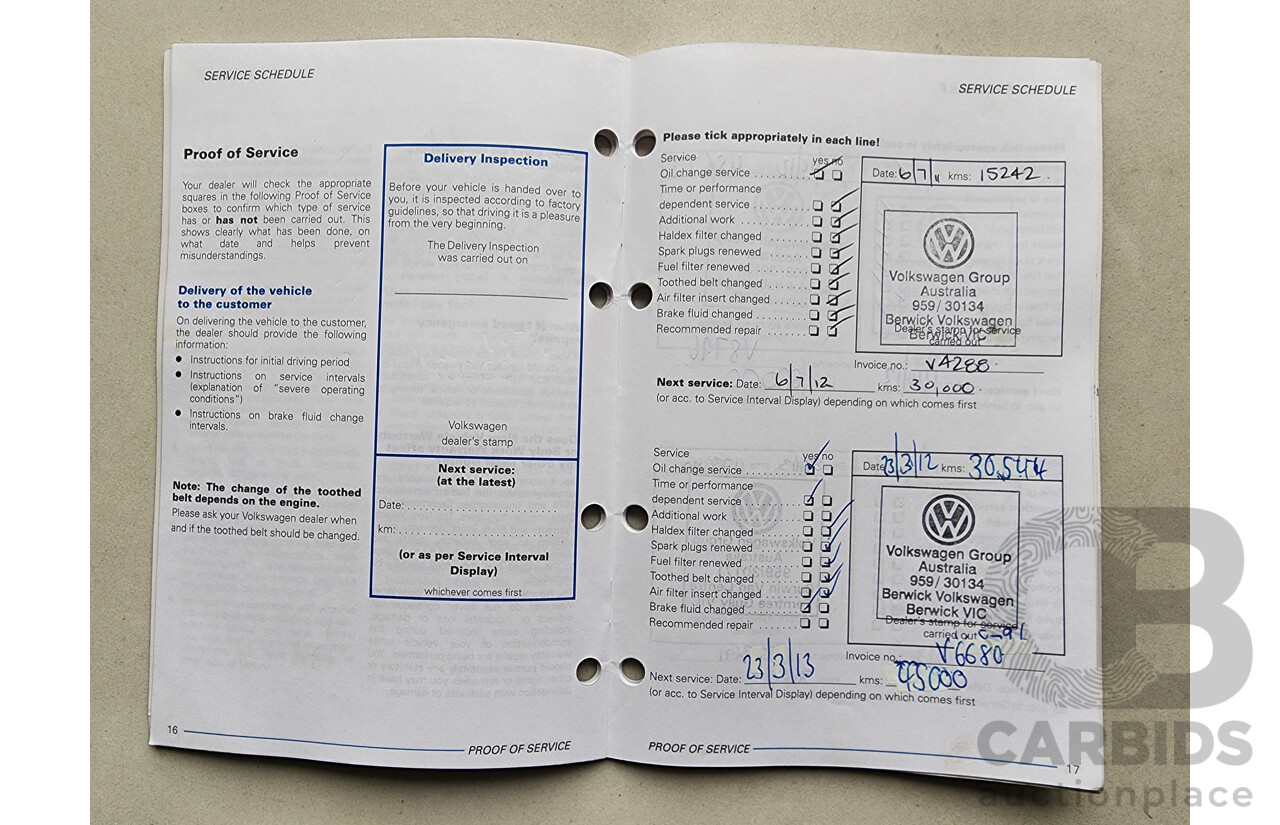 SERVICE SCHEDULE
Proof of Service
Your dealer will check the appropriate
squares in the following Proof of Service
boxes to confirm which type of service
has or has not been carried out. This
shows clearly what has been done, on
what date and helps prevent
misunderstandings.
Delivery of the vehicle
to the customer
On delivering the vehicle to the customer,
the dealer should provide the following
information:
● Instructions for initial driving period
● Instructions on service intervals
(explanation of "severe operating
conditions")
● Instructions on brake fluid change
intervals.
Note: The change of the toothed
belt depends on the engine.
Please ask your Volkswagen dealer when
and if the toothed belt should be changed.
Delivery Inspection
Before your vehicle is handed over to
you, it is inspected according to factory
guidelines, so that driving it is a pleasure
from the very beginning.
The Delivery Inspection
was carried out on
Volkswagen
dealer's stamp
Next service:
(at the latest)
Date:
km:
(or as per Service Interval
Display)
whichever comes first
16
PROOF OF SERVICE
SERVICE SCHEDULE
Please tick appropriately in each line!
Service yes no
Oil change service
Time or performance
dependent service
Additional work
Haldex filter changed
Spark plugs renewed
Fuel filter renewed
Toothed belt changed
Air filter insert changed
Brake fluid changed
Recommended repair
Date: 6/7/11 kms: 15242.
Volkswagen Group
Australia
959/ 30134
Berwick Volkswagen
Berwick VIC
Dealer's stamp for service
carried out
Invoice no.: VA288.
Next service: Date: 6/7/12 kms: 30,000.
(or acc. to Service Interval Display) depending on which comes first
Service yes no
Oil change service
Time or performance
dependent service
Additional work
Haldex filter changed
Spark plugs renewed
Fuel filter renewed
Toothed belt changed
Air filter insert changed
Brake fluid changed
Recommended repair
Date: 23/3/12 kms: 30,544
Volkswagen Group
Australia
959/ 30134
Berwick Volkswagen
Berwick VIC
Dealer's stamp for service
carried out
Invoice no.: V6680
Next service: Date: 23/3/13 kms: 45000
(or acc. to Service Interval Display) depending on which comes first
PROOF OF SERVICE
17
CARBIDS
auctionplace